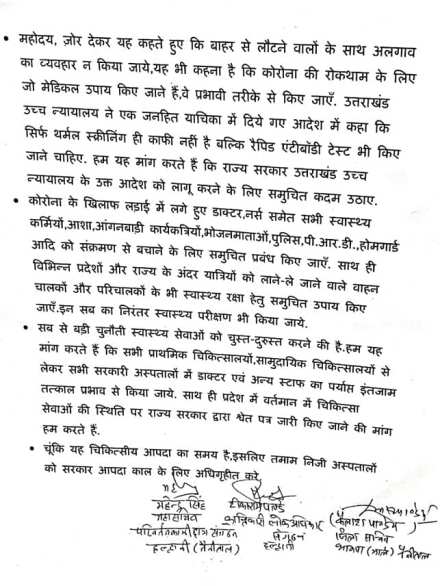 • महोदय, ज़ोर देकर यह कहते हुए कि बाहर से लौटने वालों के साथ अलगाव
का व्यवहार न किया जाये,यह भी कहना है कि कोरोना की रोकथाम के लिए
जो मेडिकल उपाय किए जाने हैं,वे प्रभावी तरीके से किए जाएँ. उत्तराखंड
उच्च न्यायालय ने एक जनहित याचिका में दिये गए आदेश में कहा कि
सिर्फ थर्मल स्क्रीनिंग ही काफी नहीं है बल्कि रैपिड एंटीबॉडी टेस्ट भी किए
जाने चाहिए. हम यह मांग करते हैं कि राज्य सरकार उत्तराखंड उच्च
न्यायालय के उक्त आदेश को लागू करने के लिए समुचित कदम उठाए.
• कोरोना के खिलाफ लड़ाई में लगे हुए डाक्टर,नर्स समेत सभी स्वास्थ्य
कर्मियों,आशा,आंगनबाड़ी कार्यकत्रियों,भोजनमाताओं,पुलिस,पी.आर.डी.,होमगार्ड
आदि को संक्रमण से बचाने के लिए समुचित प्रबंध किए जाएँ. साथ ही
विभिन्न प्रदेशों और राज्य के अंदर यात्रियों को लाने-ले जाने वाले वाहन
चालकों और परिचालकों के भी स्वास्थ्य रक्षा हेतु समुचित उपाय किए
जाएँ.इन सब का निरंतर स्वास्थ्य परीक्षण भी किया जाये.
• सब से बड़ी चुनौती स्वास्थ्य सेवाओं को चुस्त-दुरुस्त करने की है.हम यह
मांग करते हैं कि सभी प्राथमिक चिकित्सालयों,सामुदायिक चिकित्सालयों से
लेकर सभी सरकारी अस्पतालों में डाक्टर एवं अन्य स्टाफ का पर्याप्त इंतजाम
तत्काल प्रभाव से किया जाये. साथ ही प्रदेश में वर्तमान में चिकित्सा
सेवाओं की स्थिति पर राज्य सरकार द्वारा श्वेत पत्र जारी किए जाने की मांग
हम करते हैं.
• चूंकि यह चिकित्सीय आपदा का समय है,इसलिए तमाम निजी अस्पतालों
को सरकार आपदा काल के लिए अधिगृहीत करे.
महेन्द्र सिंह
महासचिव
परिवर्तनकामी छात्र संगठन
हल्द्वानी (नैनीताल)
टीकाराम पाण्डे
क्रान्तिकारी लोक अधिकार
संगठन
हल्द्वानी
(कैलाश पाण्डेय)
जिला सचिव
भाकपा (माले) नैनीताल